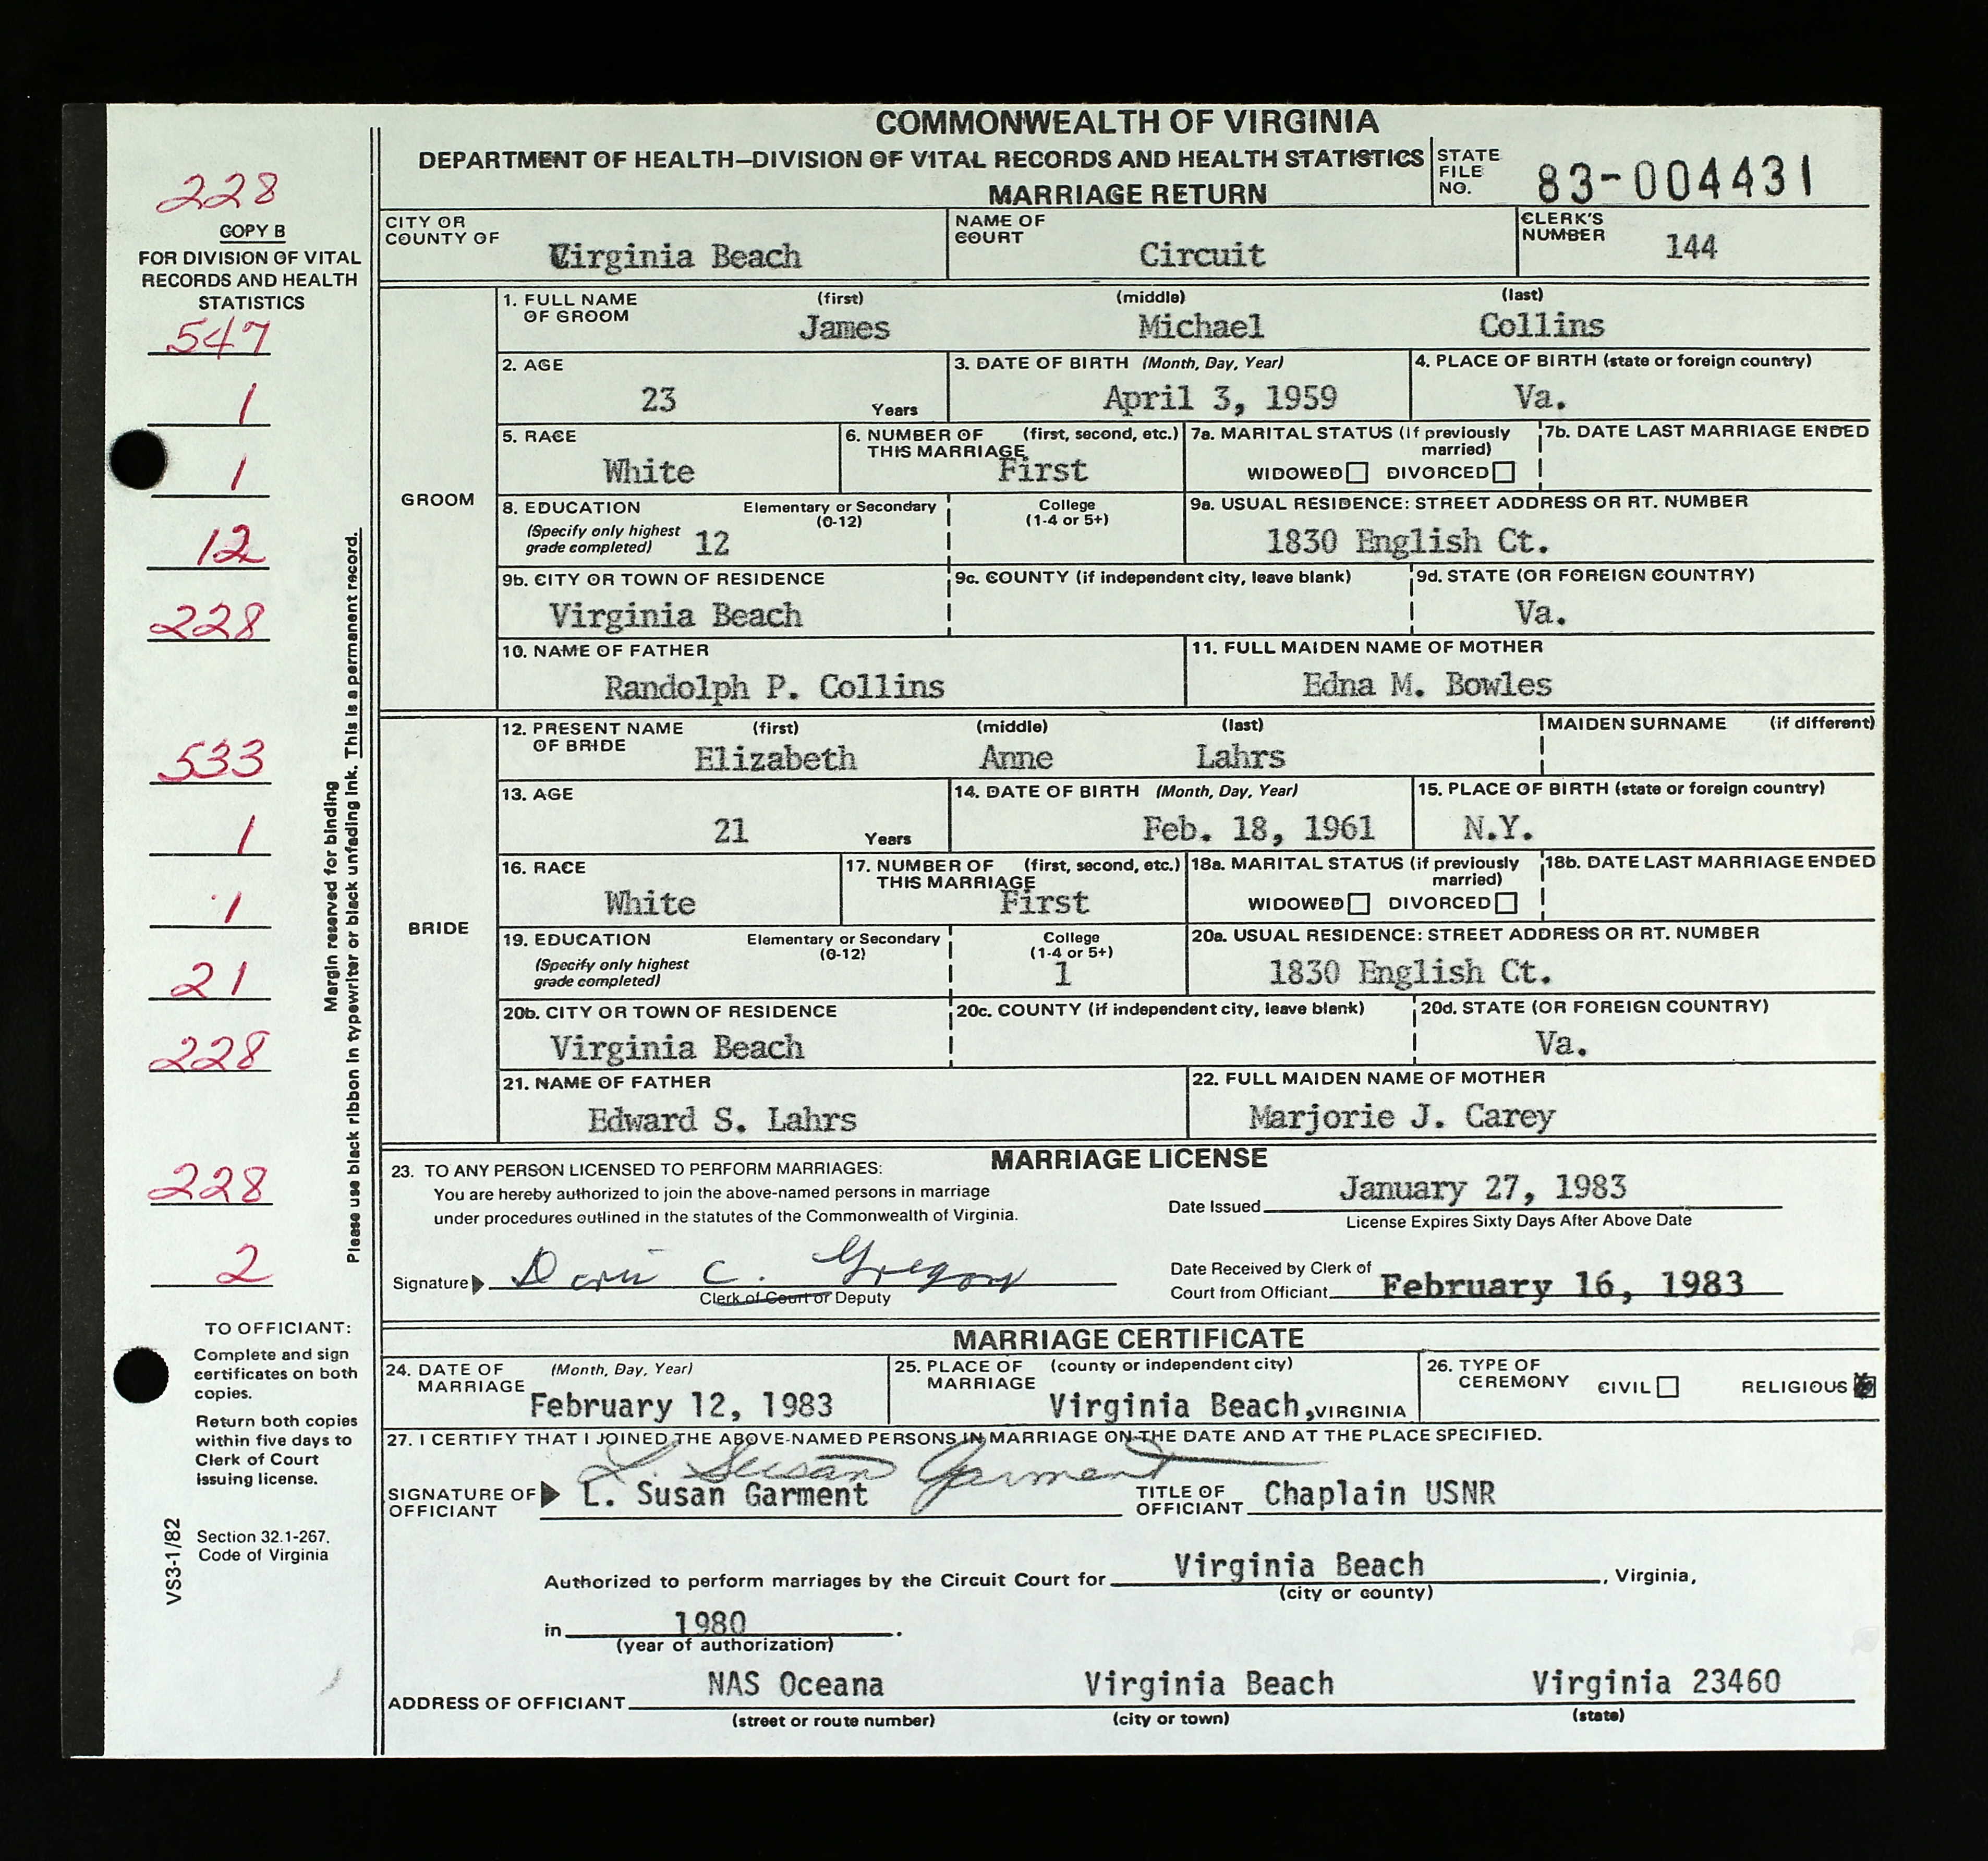 COMMONWEALTH OF VIRGINIA
DEPARTMENT OF HEALTH—DIVISION OF VITAL RECORDS AND HEALTH STATISTICS
MARRIAGE RETURN
STATE FILE NO. 83-004431
228
COPY B
FOR DIVISION OF VITAL
RECORDS AND HEALTH
STATISTICS
547
1
1
12
228
533
1
1
21
228
228
2
Margin reserved for binding
Please use black ribbon in typewriter or black unfading ink. This is a permanent record.
TO OFFICIANT:
Complete and sign
certificates on both
copies.
Return both copies
within five days to
Clerk of Court
issuing license.
Section 32.1-267,
Code of Virginia
VS3-1/82
CITY OR COUNTY OF Virginia Beach
NAME OF COURT Circuit
CLERK'S NUMBER 144
GROOM
1. FULL NAME OF GROOM (first) James (middle) Michael (last) Collins
2. AGE 23 Years
3. DATE OF BIRTH (Month, Day, Year) April 3, 1959
4. PLACE OF BIRTH (state or foreign country) Va.
5. RACE White
6. NUMBER OF THIS MARRIAGE (first, second, etc.) First
7a. MARITAL STATUS (if previously married) WIDOWED DIVORCED
7b. DATE LAST MARRIAGE ENDED
8. EDUCATION (Specify only highest grade completed) Elementary or Secondary (0-12) 12 College (1-4 or 5+)
9a. USUAL RESIDENCE: STREET ADDRESS OR RT. NUMBER 1830 English Ct.
9b. CITY OR TOWN OF RESIDENCE Virginia Beach
9c. COUNTY (if independent city, leave blank)
9d. STATE (OR FOREIGN COUNTRY) Va.
10. NAME OF FATHER Randolph P. Collins
11. FULL MAIDEN NAME OF MOTHER Edna M. Bowles
BRIDE
12. PRESENT NAME OF BRIDE (first) Elizabeth (middle) Anne (last) Lahrs
MAIDEN SURNAME (if different)
13. AGE 21 Years
14. DATE OF BIRTH (Month, Day, Year) Feb. 18, 1961
15. PLACE OF BIRTH (state or foreign country) N.Y.
16. RACE White
17. NUMBER OF THIS MARRIAGE (first, second, etc.) First
18a. MARITAL STATUS (if previously married) WIDOWED DIVORCED
18b. DATE LAST MARRIAGE ENDED
19. EDUCATION (Specify only highest grade completed) Elementary or Secondary (0-12) College (1-4 or 5+) 1
20a. USUAL RESIDENCE: STREET ADDRESS OR RT. NUMBER 1830 English Ct.
20b. CITY OR TOWN OF RESIDENCE Virginia Beach
20c. COUNTY (if independent city, leave blank)
20d. STATE (OR FOREIGN COUNTRY) Va.
21. NAME OF FATHER Edward S. Lahrs
22. FULL MAIDEN NAME OF MOTHER Marjorie J. Carey
MARRIAGE LICENSE
23. TO ANY PERSON LICENSED TO PERFORM MARRIAGES:
You are hereby authorized to join the above-named persons in marriage
under procedures outlined in the statutes of the Commonwealth of Virginia.
Date Issued January 27, 1983
License Expires Sixty Days After Above Date
Signature Doris C. Gregory
Clerk of Court or Deputy
Date Received by Clerk of
Court from Officiant February 16, 1983
MARRIAGE CERTIFICATE
24. DATE OF MARRIAGE (Month, Day, Year) February 12, 1983
25. PLACE OF MARRIAGE (county or independent city) Virginia Beach, VIRGINIA
26. TYPE OF CEREMONY CIVIL RELIGIOUS
27. I CERTIFY THAT I JOINED THE ABOVE-NAMED PERSONS IN MARRIAGE ON THE DATE AND AT THE PLACE SPECIFIED.
L. Susan Garment
SIGNATURE OF OFFICIANT L. Susan Garment
TITLE OF OFFICIANT Chaplain USNR
Authorized to perform marriages by the Circuit Court for Virginia Beach, Virginia,
(city or county)
in 1980.
(year of authorization)
ADDRESS OF OFFICIANT NAS Oceana Virginia Beach Virginia 23460
(street or route number) (city or town) (state)